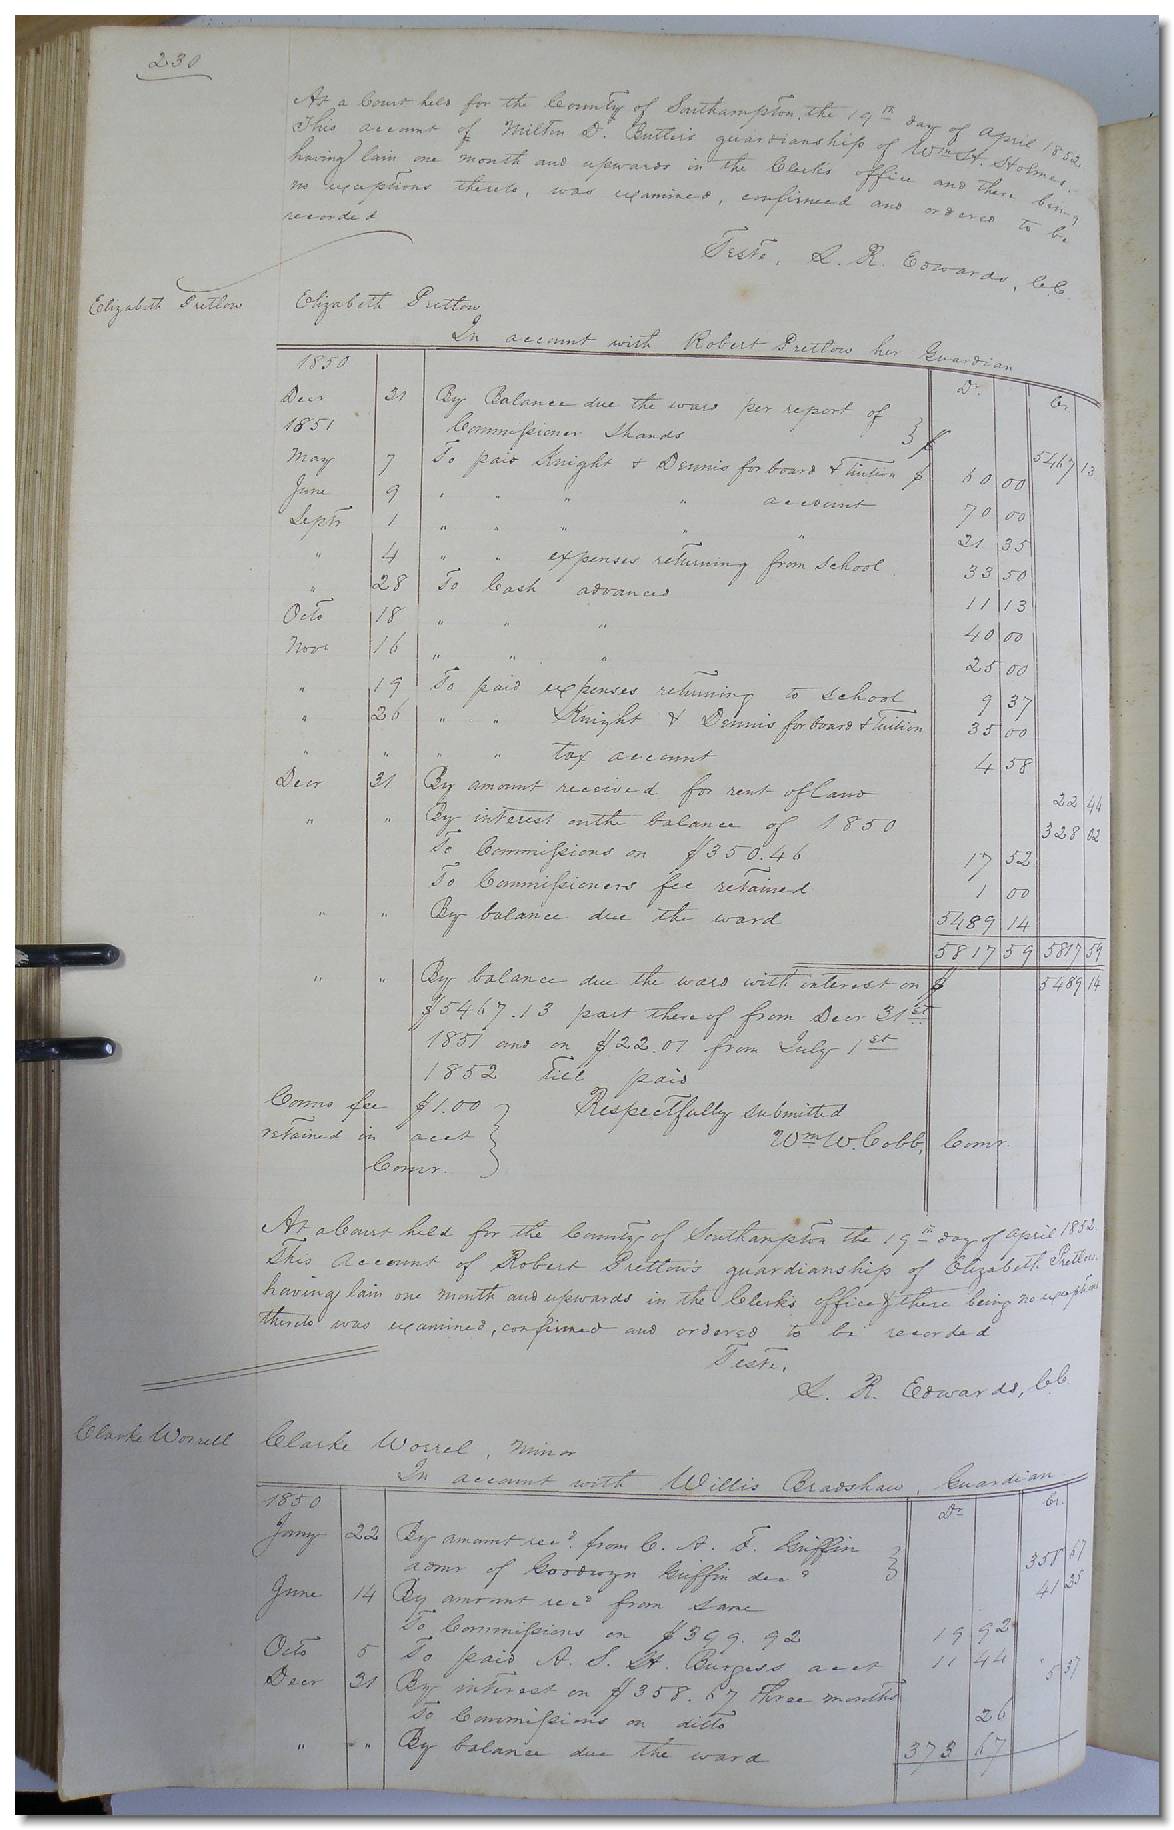 230
At a Court held for the County of Southampton, the 19th day of April 1852
This account of Milton D. Butler's guardianship of Wm H. Holmes.
having lain one month and upwards in the Clerk's office and there being
no exceptions thereto, was examined, confirmed and ordered to be
recorded
Teste, L. R. Edwards, C.C.
Elizabeth Pretlow
Elizabeth Pretlow
In account with Robert Pretlow her Guardian
1850 Dr. Cr.
Decr 31 By Balance due the ward per report of
1851 Commissioner Shands } $ 5467 13
May 7 To paid Knight & Dennis for board & Tuition $ 60 00
June 9 " " " " account 70 00
Septr 1 " " " " " 21 35
" 4 " " expenses returning from school 33 50
" 28 To Cash advanced 11 13
Octo 18 " " " 40 00
Novr 16 " " " 25 00
" 19 To paid expenses returning to school 9 37
" 26 " " Knight & Dennis for board & Tuition 35 00
" " " " tax account 4 58
Decr 31 By amount received for rent of land 22 44
" " By interest on the balance of 1850 328 02
To Commissions on $350.46 17 52
To Commissioners fee retained 1 00
" " By balance due the ward 5489 14
5817 59 5817 59
" " By balance due the ward with interest on $ 5489 14
$5467.13 part thereof from Decr 31st
1851 and on $22.01 from July 1st
1852 till paid
Coms fee $1.00 } Respectfully submitted
retained in acct } Wm W. Cobb, Comr
Comr.
At a Court held for the County of Southampton the 19th day of April 1852
This Account of Robert Pretlow's guardianship of Elizabeth Pretlow
having lain one month and upwards in the Clerk's office & there being no exceptions
thereto was examined, confirmed and ordered to be recorded
Teste,
L. R. Edwards, C.C.
Clarke Worrell
Clarke Worrel, Minor
In account with Willis Bradshaw, Guardian
1850 Dr Cr.
Jany 22 By amount recd. from C. A. F. Griffin
admr of Goodwyn Griffin decd } 358 67
June 14 By amount recd from same 41 25
To Commissions on $399.92 19 92
Octo 5 To paid A. S. H. Burgess acct 11 44
Decr 31 By interest on $358.67 three months 5 37
To Commissions on ditto 26
" " By balance due the ward 373 67